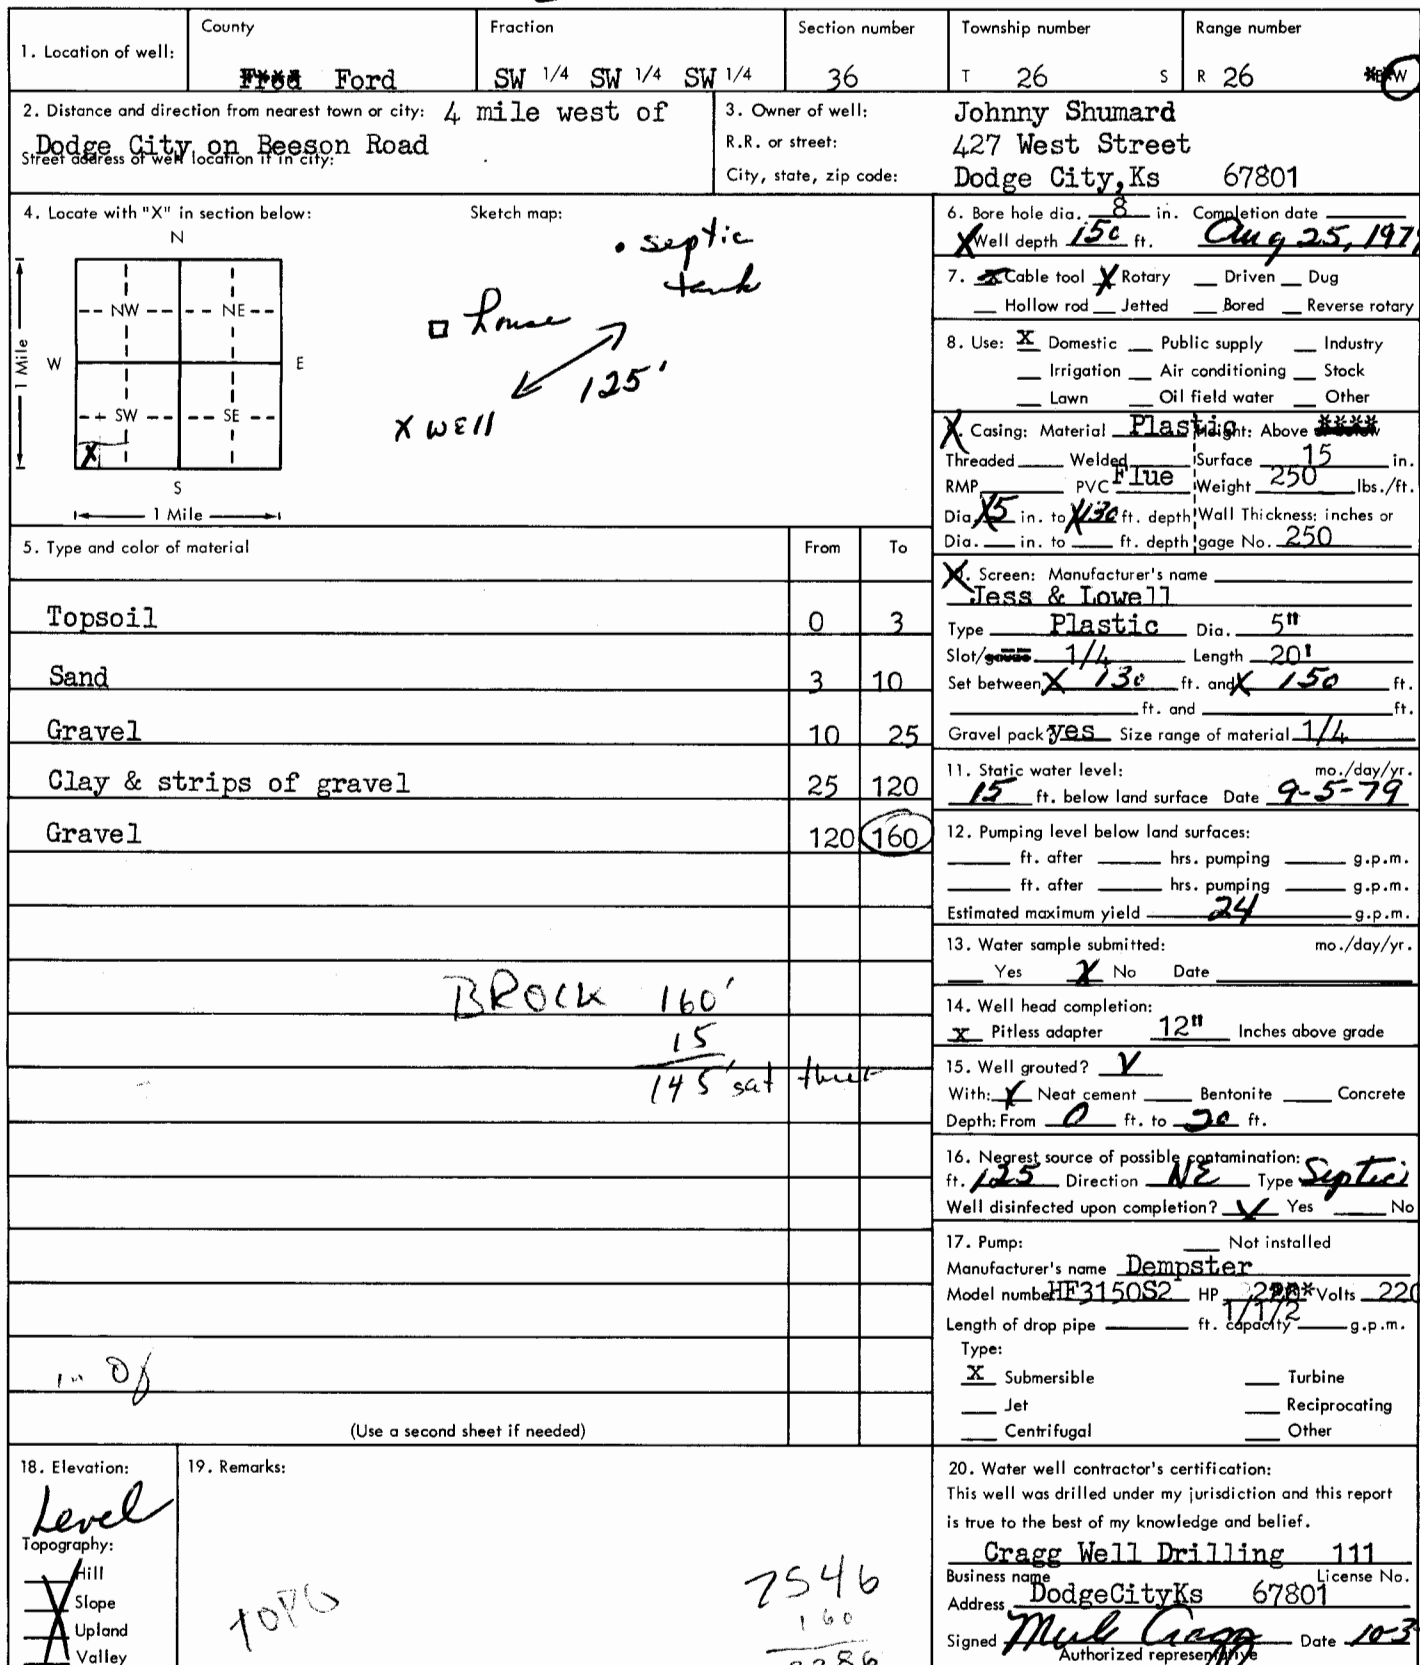 County
Fraction
Section number
Township number
Range number
1. Location of well:
Ford
SW 1/4 SW 1/4 SW 1/4
36
T 26 S
R 26 W
2. Distance and direction from nearest town or city: 4 mile west of
Dodge City on Beeson Road
Street address of well location if in city:
3. Owner of well: Johnny Shumard
R.R. or street: 427 West Street
City, state, zip code: Dodge City,Ks 67801
4. Locate with "X" in section below:
N
NW NE
W E
SW SE
X
S
1 Mile
1 Mile
Sketch map:
septic
tank
house
125'
X WELL
5. Type and color of material From To
Topsoil 0 3
Sand 3 10
Gravel 10 25
Clay & strips of gravel 25 120
Gravel 120 160
BROCK 160'
15
145' sat
(Use a second sheet if needed)
6. Bore hole dia. 8 in. Completion date
X Well depth 150 ft. Aug 25, 197
7. Cable tool X Rotary Driven Dug
Hollow rod Jetted Bored Reverse rotary
8. Use: X Domestic Public supply Industry
Irrigation Air conditioning Stock
Lawn Oil field water Other
X. Casing: Material Plastic Height: Above
Threaded Welded Surface 15 in.
RMP PVC Flue Weight 250 lbs./ft.
Dia. X5 in. to X130 ft. depth Wall Thickness: inches or
Dia. in. to ft. depth gage No. 250
X. Screen: Manufacturer's name
Jess & Lowell
Type Plastic Dia. 5"
Slot/gauze 1/4 Length 20'
Set between X 130 ft. and X 150 ft.
ft. and ft.
Gravel pack? yes Size range of material 1/4
11. Static water level: mo./day/yr.
15 ft. below land surface Date 9-5-79
12. Pumping level below land surfaces:
ft. after hrs. pumping g.p.m.
ft. after hrs. pumping g.p.m.
Estimated maximum yield 24 g.p.m.
13. Water sample submitted: mo./day/yr.
Yes X No Date
14. Well head completion:
x Pitless adapter 12" Inches above grade
15. Well grouted? V
With: X Neat cement Bentonite Concrete
Depth: From 0 ft. to 20 ft.
16. Nearest source of possible contamination:
ft. 125 Direction NE Type Septic
Well disinfected upon completion? Yes No
17. Pump: Not installed
Manufacturer's name Dempster
Model number HF3150S2 HP Volts 220
1/1/2
Length of drop pipe ft. capacity g.p.m.
Type:
X Submersible Turbine
Jet Reciprocating
Centrifugal Other
18. Elevation:
Level
Topography:
Hill
Slope
Upland
Valley
19. Remarks:
TOPO
2546
160
2386
20. Water well contractor's certification:
This well was drilled under my jurisdiction and this report
is true to the best of my knowledge and belief.
Cragg Well Drilling 111
Business name License No.
Address DodgeCityKs 67801
Signed Cragg Date 10-3
Authorized representative